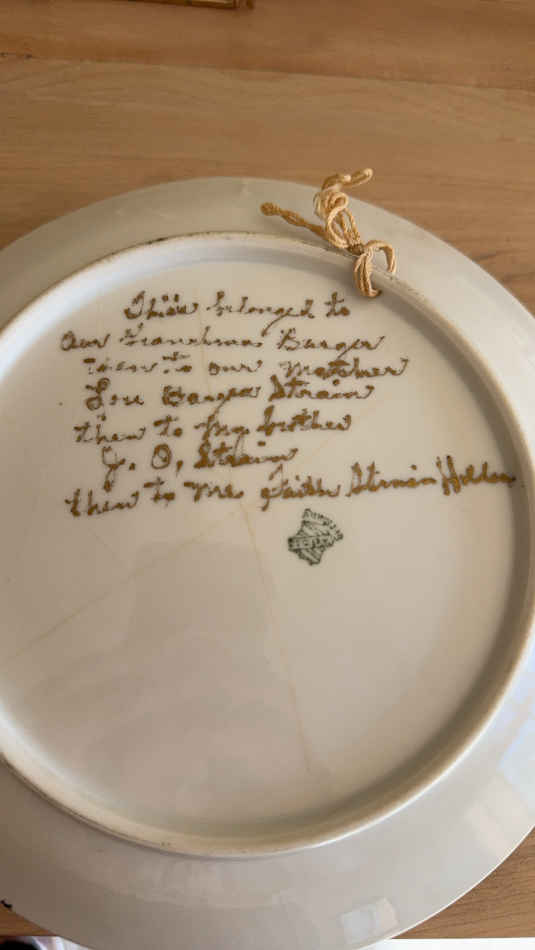 This belonged to
Our Grandma Barger
then to our Mother
Lou Barger Strain
then to my brother
J. O, Strain
then to me Faith Strain Holden